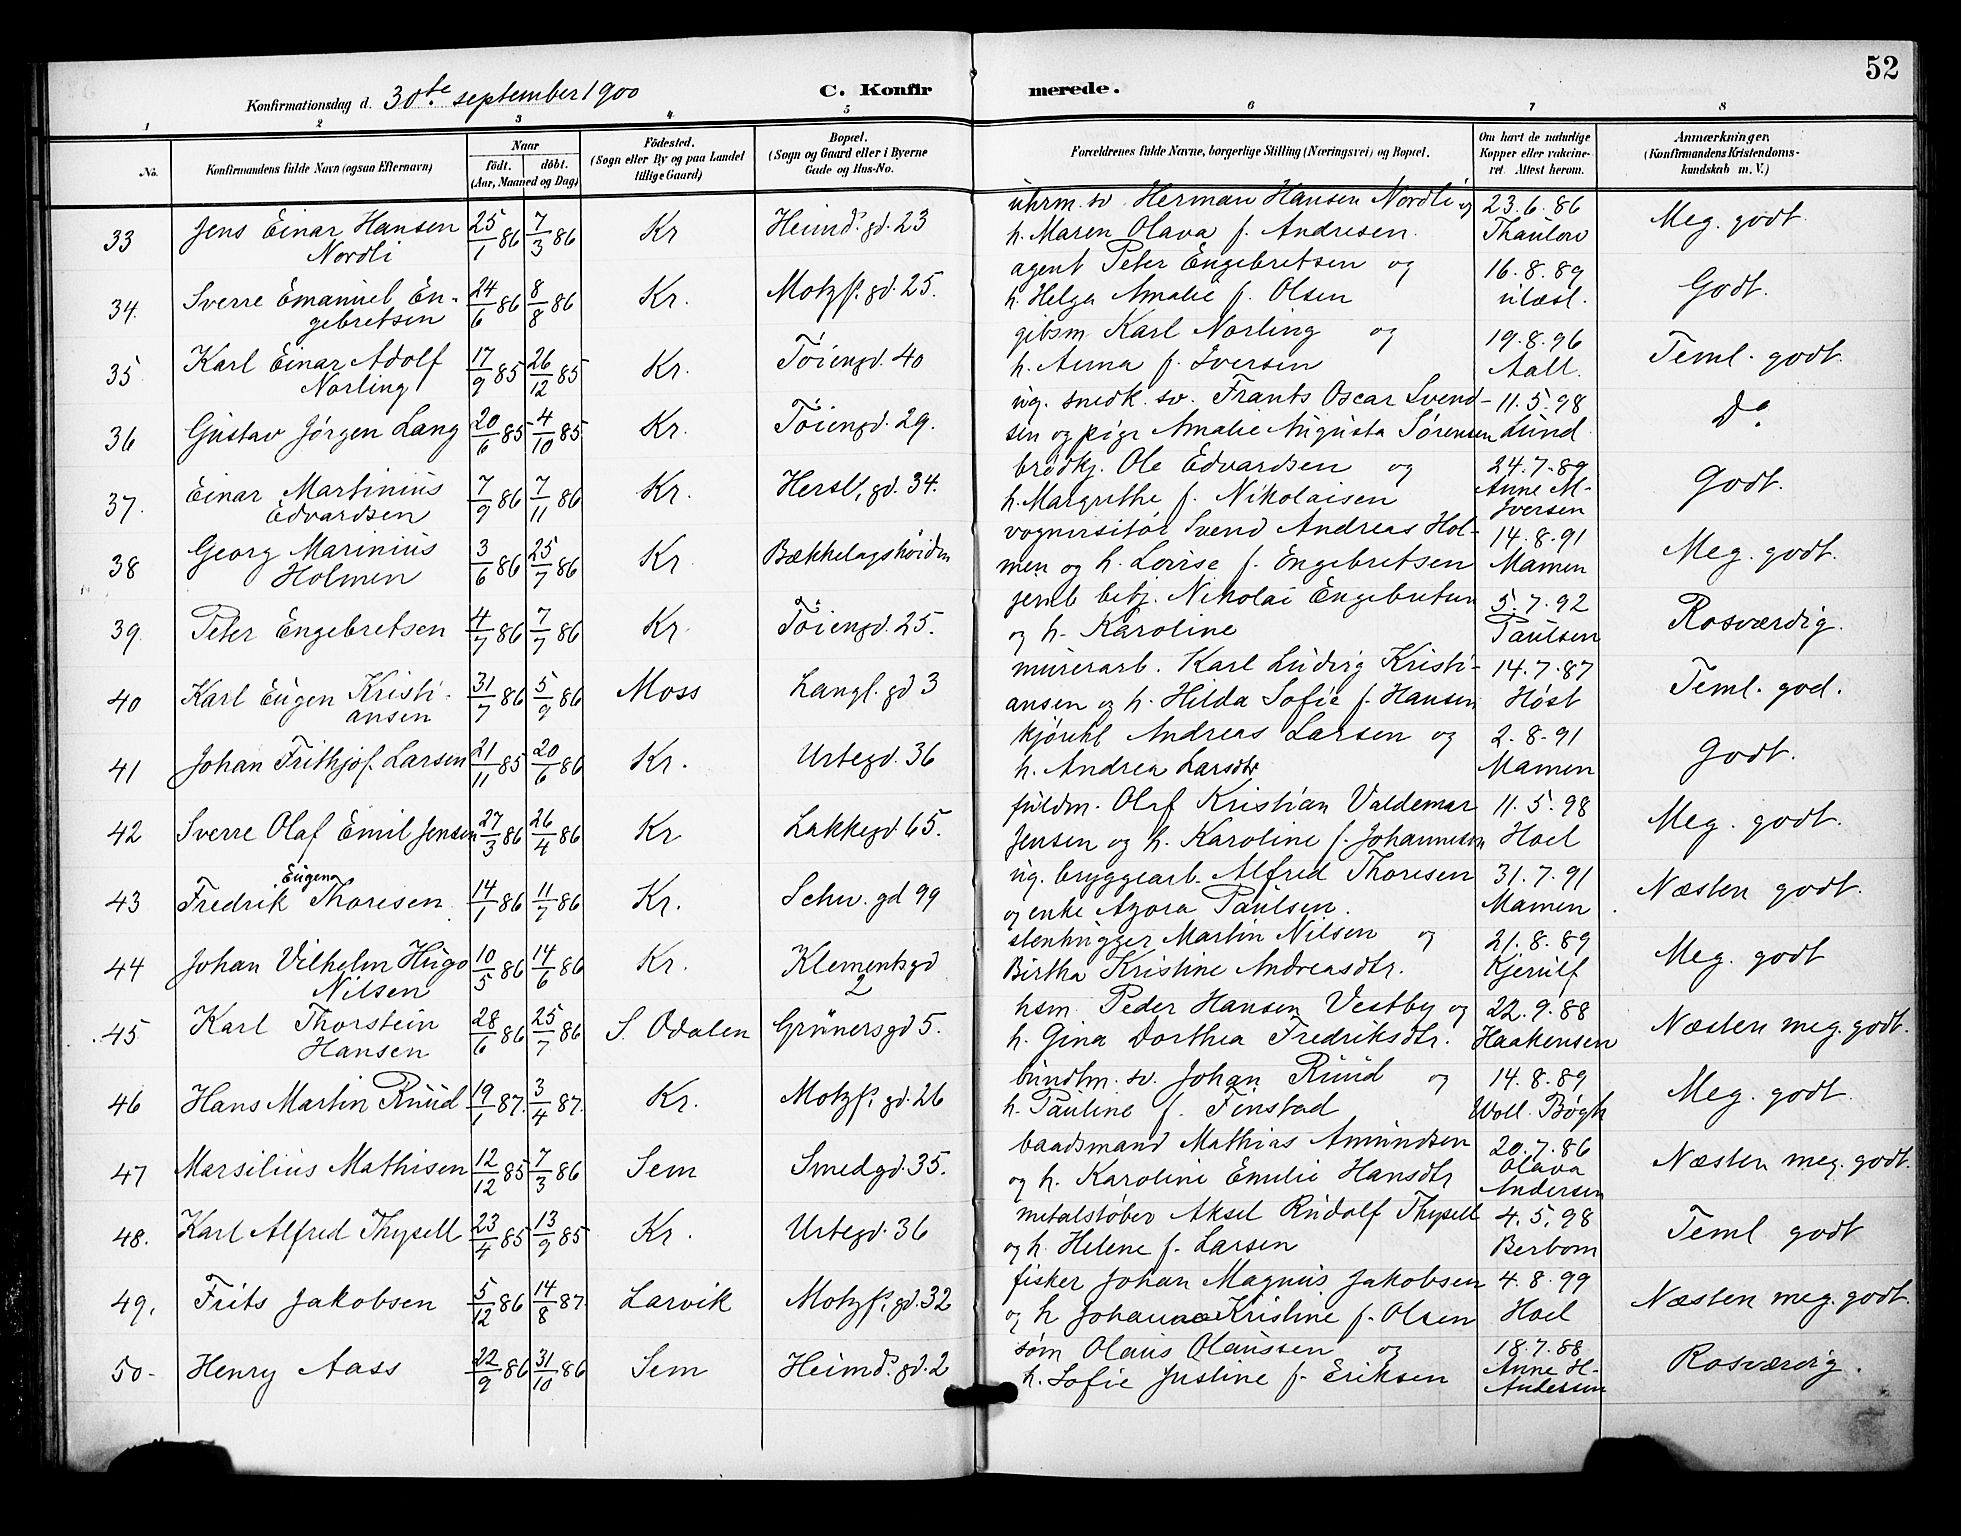 52
Konfirmationsdag d. 30te september 1900 C. Konfirmerede.
1 2 3 4 5 6 7 8
No. Konfirmandens fulde Navn (ogsaa Efternavn) Naar født. døbt. (Aar, Maaned og Dag) Fødested. (Sogn eller By og paa Landet tillige Gaard) Bopæl. (Sogn og Gaard eller i Byerne Gade og Hus-No. Forældrenes fulde Navne, borgerlige Stilling (Næringsvei) og Bopæl. Om havt de naturlige Kopper eller vakcineret. Attest herom. Anmærkninger. (Konfirmandens Kristendomskundskab m. V.)
33 Jens Einar Hansen Nordli 25/1 86 7/3 86 Kr Heimds. gd. 23 uhrm. sv. Herman Hansen Nordli og h. Maren Olava f. Andresen. 23.6.86 Thaulow Meg. godt.
34. Sverre Emanuel Engebretsen 24/6 86 8/8 86 Kr. Motzf. gd. 25. agent Peter Engebretsen og h. Helga Amalie f. Olsen 16.8.89 ulæsl. Godt.
35 Karl Einar Adolf Norling 17/9 85 26/12 85 Kr. Tøiengd. 40 gibsm Karl Norling og h. Anna f. Iversen 19.8.96 Aall. Teml. godt.
36 Gustav Jørgen Lang 20/6 85 4/10 85 Kr. Tøiengd. 29. ug. snedk. sv. Frants Oscar Svendsen og pige Amalie Augusta Sørensen 11.5.98 Lund Do.
37. Einar Martinius Edvardsen 7/9 86 7/11 86 Kr. Hersl. gd. 34. brødkj. Ole Edvardsen og h. Margrethe f. Nikolaisen 24.7.89 Anne M. Iversen Godt.
38 Georg Marinius Holmen 3/6 86 25/7 86 Kr. Bækkelagshøiden Svend Andreas Holmen og h. Lovise f. Engebretsen 14.8.91 Mamen Meg. godt.
39. Peter Engebretsen 4/7 86 7/7 86 Kr. Tøiengd. 25. jernb betj. Nikolai Engebretsen og h. Karoline 5.7.92 Paulsen Rosværdig.
40 Karl Eugen Kristiansen 31/7 86 5/9 86 Moss Langl. gd 3 murerarb. Karl Ludvig Kristiansen og h. Hilda Sofie f. Hansen 14.7.87 Høst Teml. god.
41 Johan Frithjof. Larsen 21/11 85 20/6 86 Kr. Urtegd. 36 Andreas Larsen og h. Andrea Larsdtr 2.8.91 Mamen Godt.
42 Sverre Olaf Emil Jensen 27/3 86 26/4 86 Kr Lakkegd. 65. fuldm. Olaf Kristian Valdemar Jensen og h. Karoline f. Johannesen 11.5.98 Hoel Meg. godt.
43 Fredrik Eugen Thoresen 14/1 86 11/7 86 Kr. Schw. gd 99 ug. bryggearb. Alfred Thoresen og enke Azora Paulsen. 31.7.91 Mamen Næsten godt.
44 Johan Vilhelm Hugo Nilsen 10/5 86 14/6 86 Kr. Klementsgd 2 stenhugger Martin Nilsen og Birtha Kristine Andreasdtr. 21.8.89 Kjerulf Meg. godt
45 Karl Thorstein Hansen 28/6 86 25/7 86 S. Odalen Grünersgd 5. hsm. Peder Hansen Vestby og h. Gina Dorthea Fredriksdtr. 22.9.88 Haakensen Næsten meg. godt.
46 Hans Martin Ruud 19/1 87. 3/4 87. Kr. Motzf. gd. 26 bundtm. sv. Johan Ruud og h. Pauline f. Finstad 14.8.89 Woll. Bøgh Meg. godt.
47 Marsilius Mathisen 12/12 85 7/3 86 Sem Smedgd. 35. baadsmand Mathias Amundsen og h. Karoline Emilie Hansdtr 20.7.86 Olava Andersen Næsten meg. godt.
48. Karl Alfred Thysell 23/4 85 13/9 85 Kr. Urtegd. 36 metalstøber Aksel Rudolf Thysell og h. Helene f. Larsen 4.5.98 Berbom Teml godt
49. Frits Jakobsen 5/12 86 14/8 87. Larvik Motzf. gd. 32 fisker Johan Magnus Jakobsen og h Johanna Kristine f. Olsen 4.8.99 Hoel Næsten meg. godt.
50. Henry Aass 22/9 86 31/10 86 Sem Heimds. gd. 2 søm Olaus Olaussen og h. Sofie Justine f. Eriksen 18.7.88 Anne H. Andersen Rosværdig.